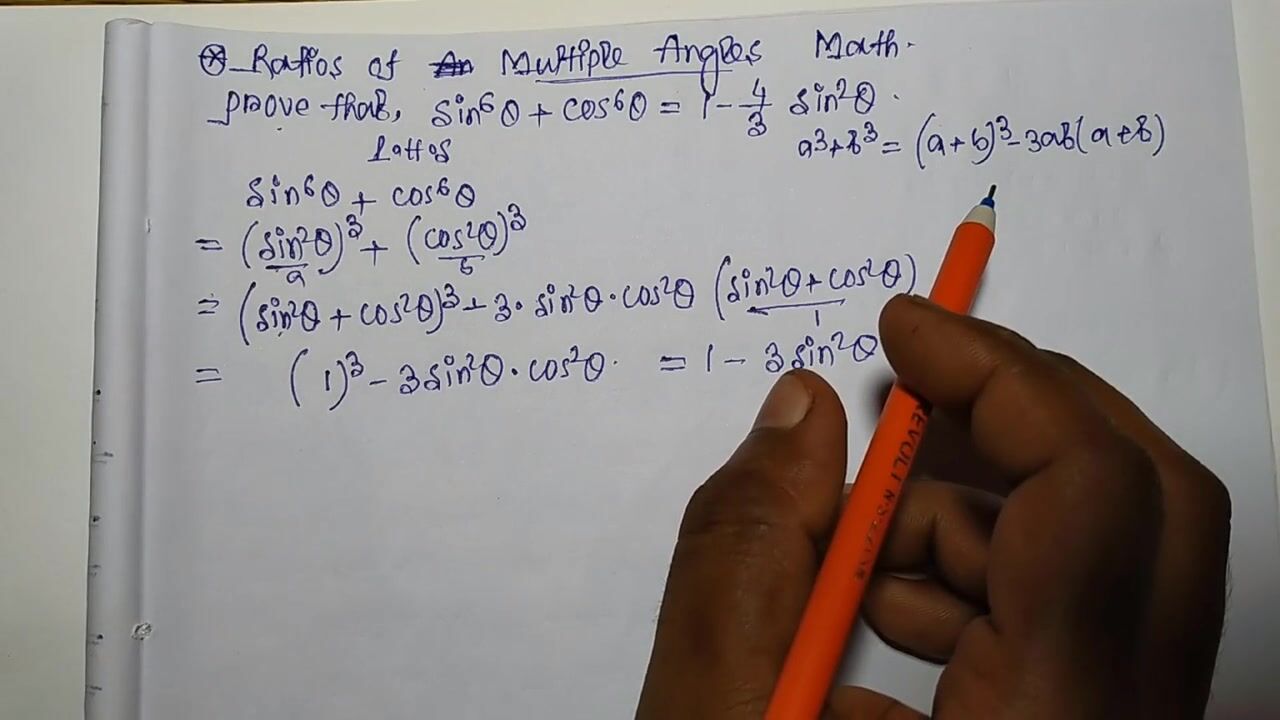 Ratios of An Multiple Angles Math.
prove that, sin⁶θ + cos⁶θ = 1 - 4/3 sin²θ.
a³+b³ = (a+b)³-3ab(a+b)
sin⁶θ + cos⁶θ
= (sin²θ)³ + (cos²θ)³
a b
= (sin²θ + cos²θ)³ - 3. sin²θ·cos²θ (sin²θ+cos²θ)
1
= (1)³ - 3sin²θ·cos²θ. = 1 - 3sin²θ
REVOL